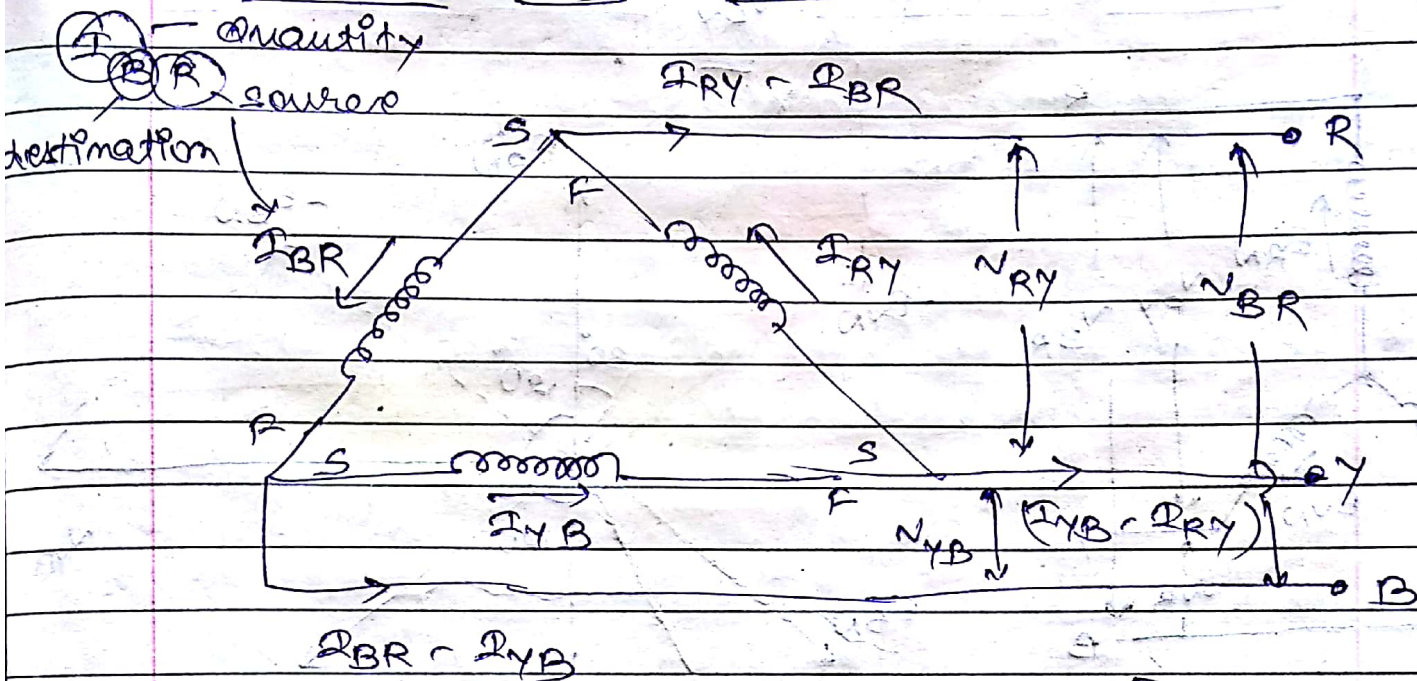 I - Quantity
B R source
destination
I_RY - I_BR
S R
F
I_BR I_RY V_RY V_BR
F S S Y
F
I_YB V_YB (I_YB - I_RY)
B
I_BR - I_YB